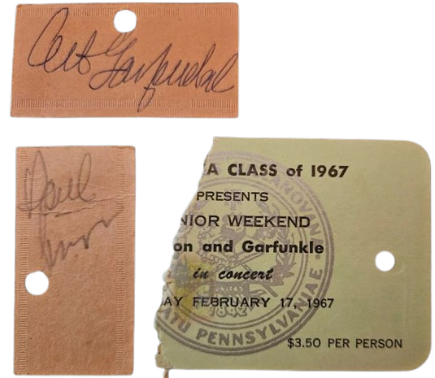 Art Garfunkel
Paul
Simon
A CLASS of 1967
PRESENTS
NIOR WEEKEND
on and Garfunkle
in concert
AY FEBRUARY 17, 1967
1842
ATU PENNSYLVANIAE
$3.50 PER PERSON